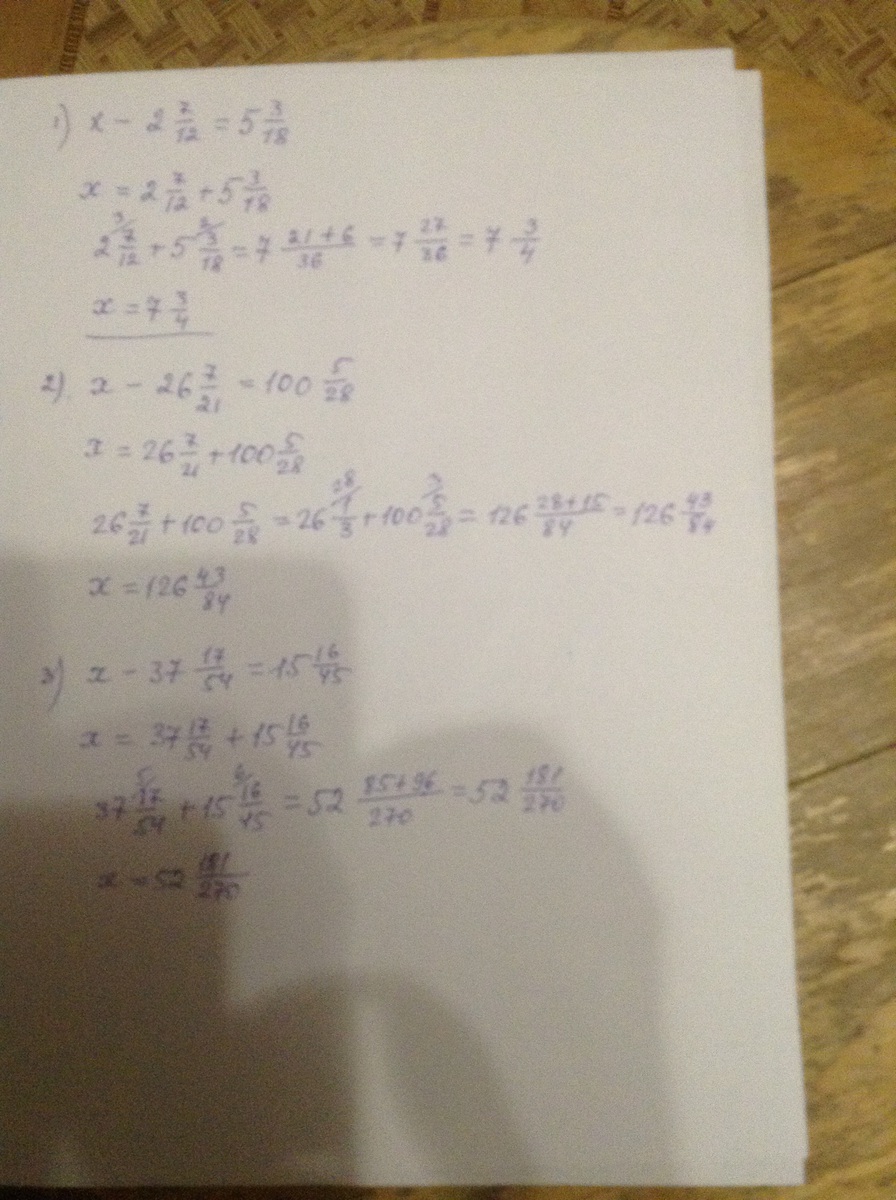 1) x - 2 7/12 = 5 3/18
x = 2 7/12 + 5 3/18
2 7/12 3/ + 5 3/18 2/ = 7 21+6/36 = 7 27/36 = 7 3/4
x = 7 3/4
2) x - 26 7/21 = 100 5/28
x = 26 7/21 + 100 5/28
26 7/21 + 100 5/28 = 26 1/3 28/ + 100 5/28 3/ = 126 28+15/84 = 126 43/84
x = 126 43/84
3) x - 37 17/54 = 15 16/45
x = 37 17/54 + 15 16/45
37 17/54 5/ + 15 16/45 6/ = 52 85+96/270 = 52 181/270
x = 52 181/270